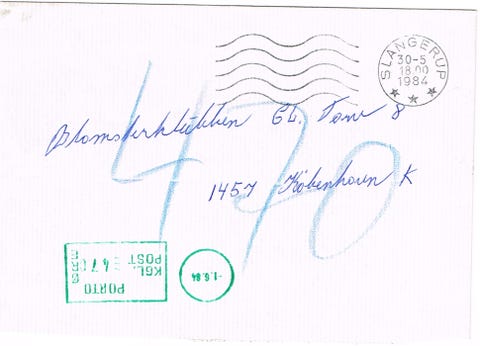 SLANGERUP
30-5
18.00
1984
Blomsterklubben GL. Torv 8
1457 København K
470
KGL.
POST
PORTO
-1.6.84